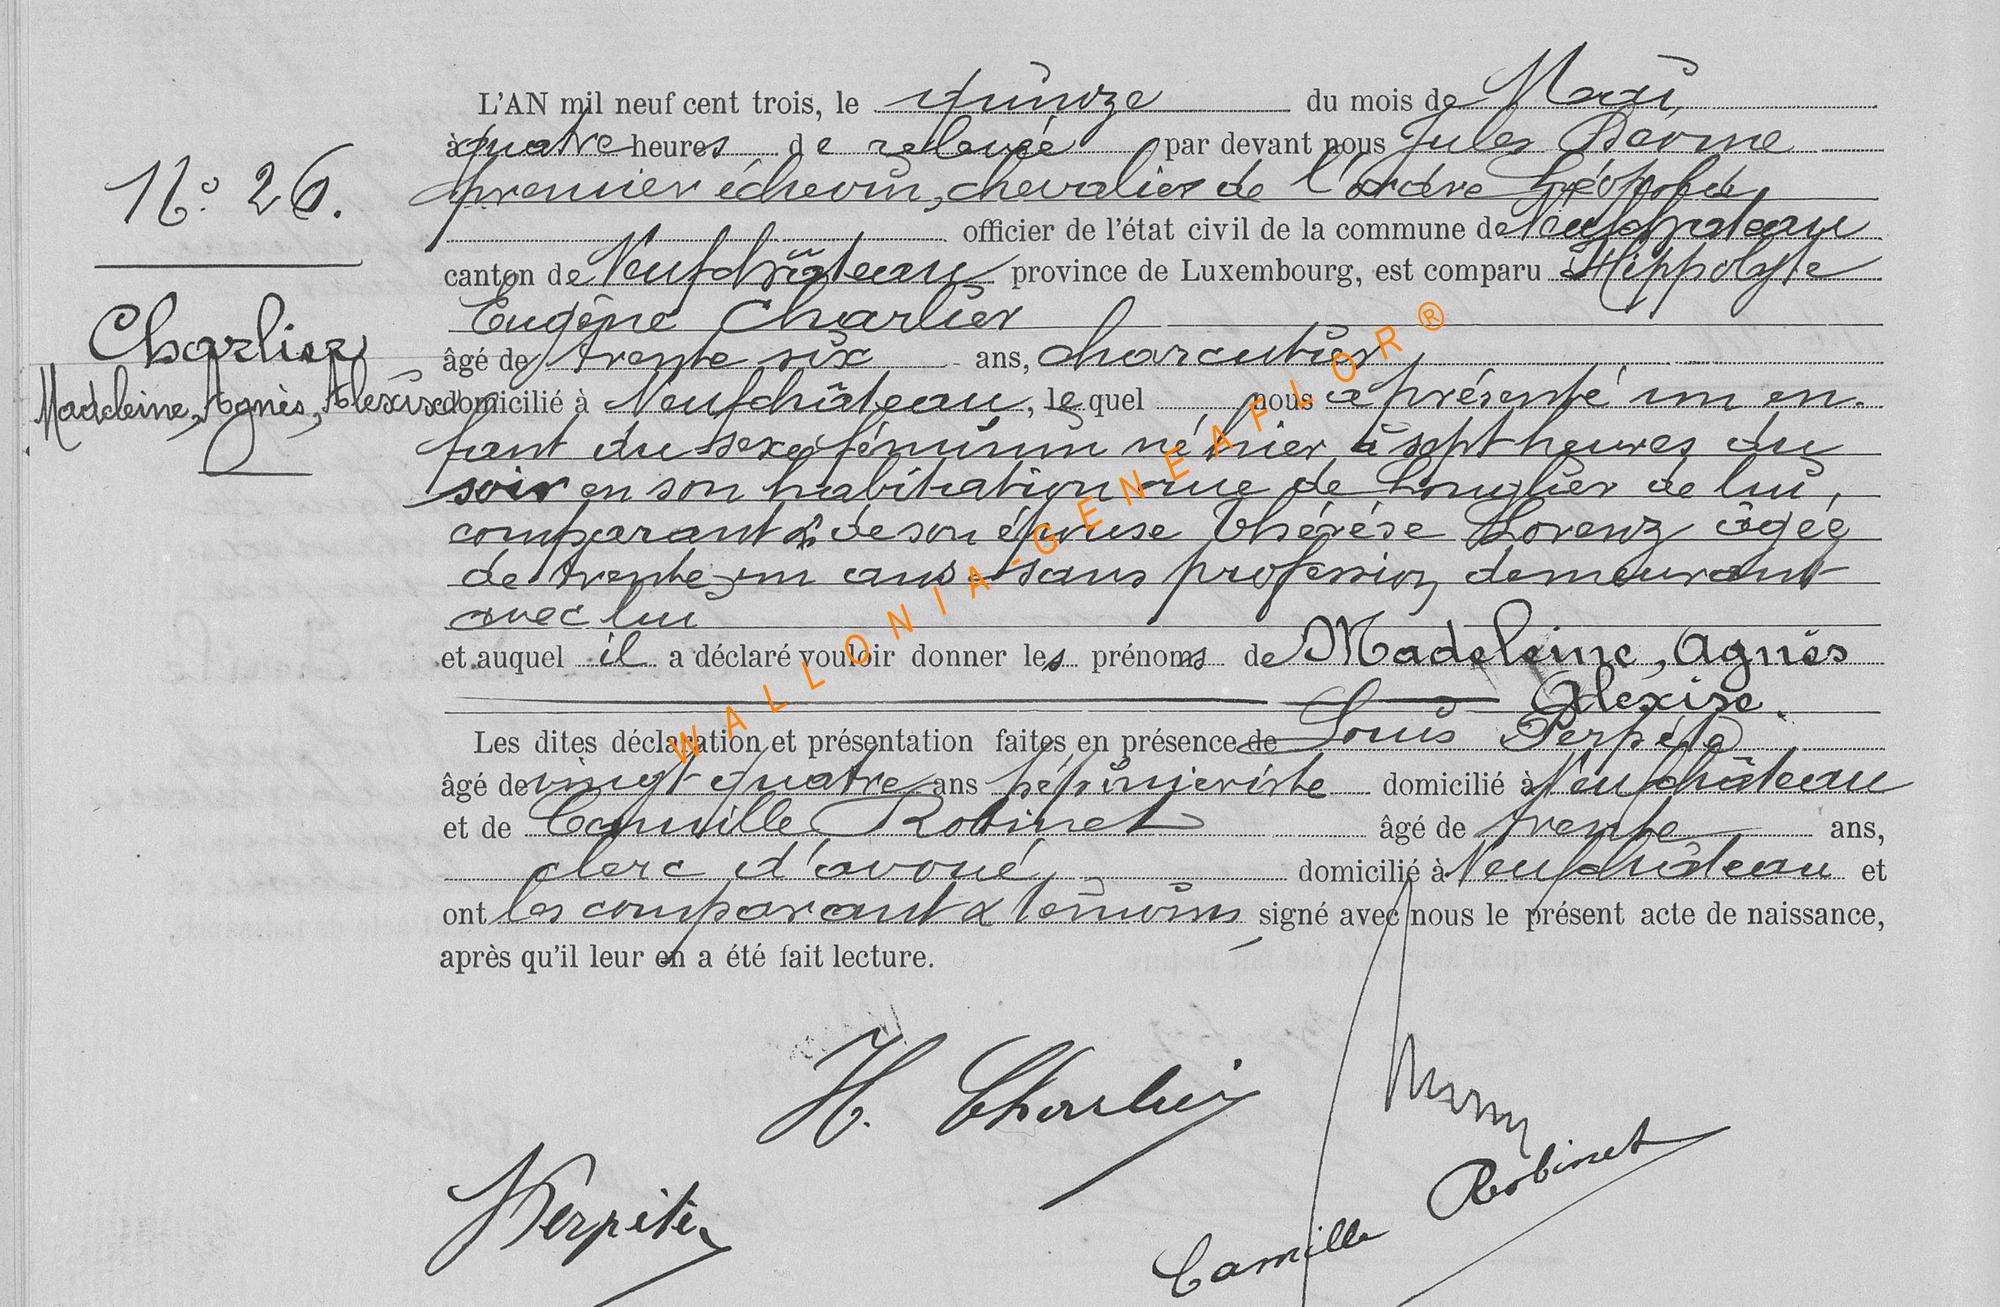 N° 26.
Charlier
Madeleine, Agnès, Alexise
L'AN mil neuf cent trois, le quinze du mois de Mai
à quatre heures de relevée par devant nous Jules
premier échevin, chevalier de l'ordre Léopold,
officier de l'état civil de la commune de Neufchateau
canton de Neufchâteau province de Luxembourg, est comparu Hippolyte
Eugène Charlier
âgé de trente six ans, charcutier
domicilié à Neufchâteau, le quel nous a présenté un en-
fant du sexe féminin né hier à sept heures du
soir en son habitation rue de Longlier de lui,
comparant & de son épouse Thérèse Lorenz âgée
de trente-un ans sans profession, demeurant
avec lui
et auquel il a déclaré vouloir donner les prénoms de Madeleine, Agnès
Alexise.
Les dites déclaration et présentation faites en présence de Louis Perpète
âgé de vingt-quatre ans pépinieriste domicilié à Neufchâteau
et de Camille Robinet âgé de trente ans,
clerc d'avoué, domicilié à Neufchâteau et
ont les comparant & témoins signé avec nous le présent acte de naissance,
après qu'il leur en a été fait lecture.
H. Charlier
Perpète
Camille Robinet
WALLONIA-GENEAFLOR®